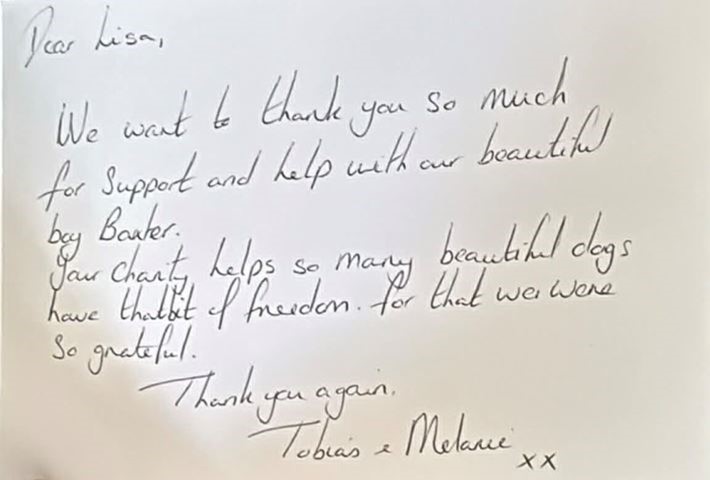 Dear Lisa,
We want to thank you so much
for support and help with our beautiful
boy Baxter.
Your charity helps so many beautiful dogs
have that bit of freedom. for that we were
so grateful.
Thank you again.
Tobias & Melanie
xx